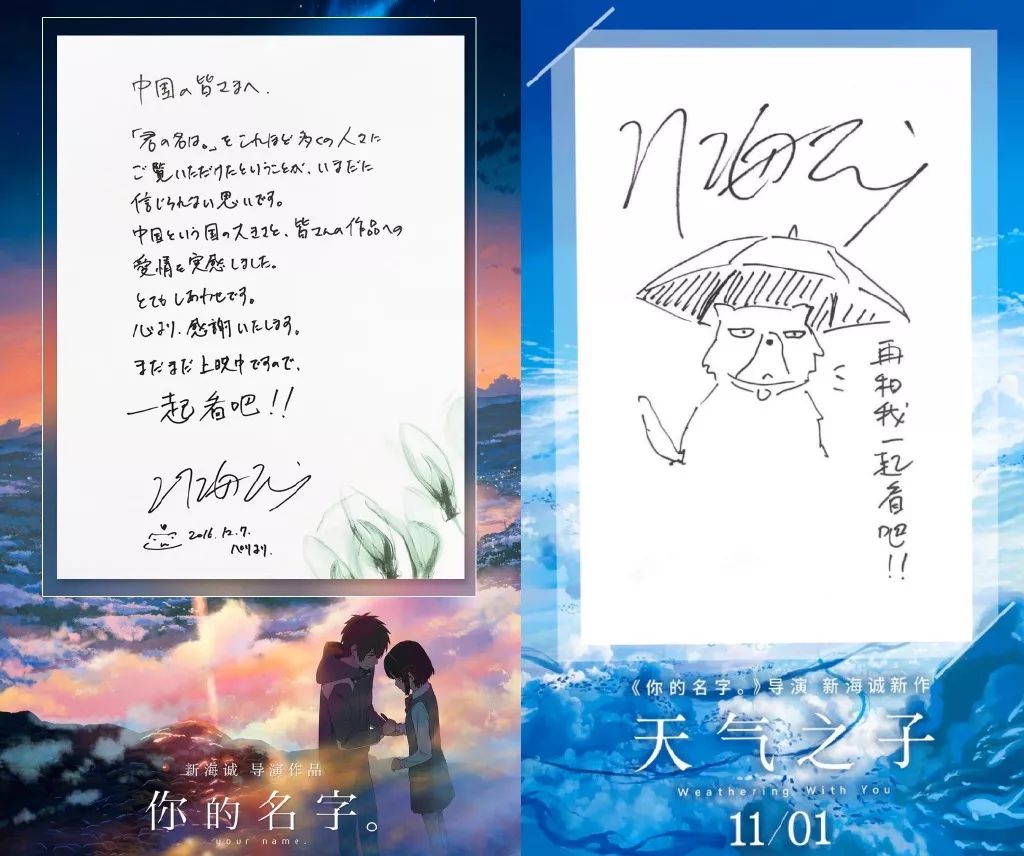 中国の皆さまへ.
「君の名は。」をこれほど多くの人々に
ご覧いただけたということが、いまだに
信じられない思いです。
中国という国の大きさと、皆さんの作品への
愛情を実感しました。
とてもしあわせです。
心より、感謝いたします。
まだまだ上映中ですので、
一起看吧!!
新海誠
2016.12.7.
パリより.
新海诚 导演作品
你的名字。
your name.
新海誠
再和我一起看吧!!
《你的名字。》导演 新海诚新作
天气之子
Weathering With You
11/01